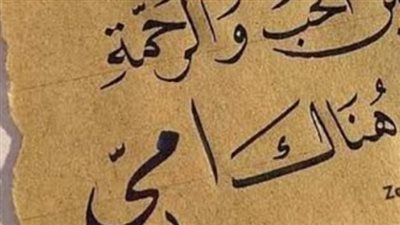 الحب وَالرَحمَةِ
هُنَاك اميّ